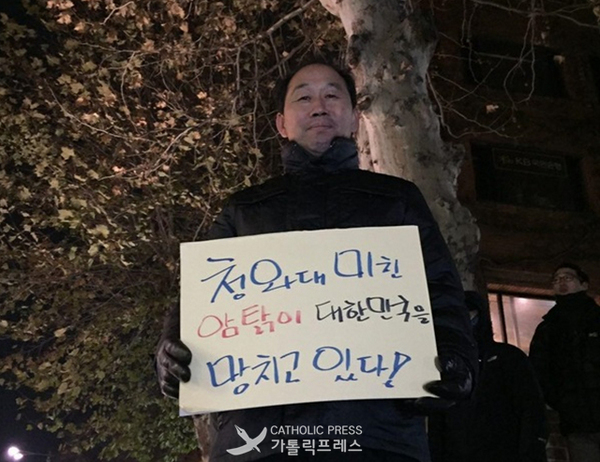 청와대 미친
암탉이 대한민국을
망치고 있다!
CATHOLIC PRESS
가톨릭프레스